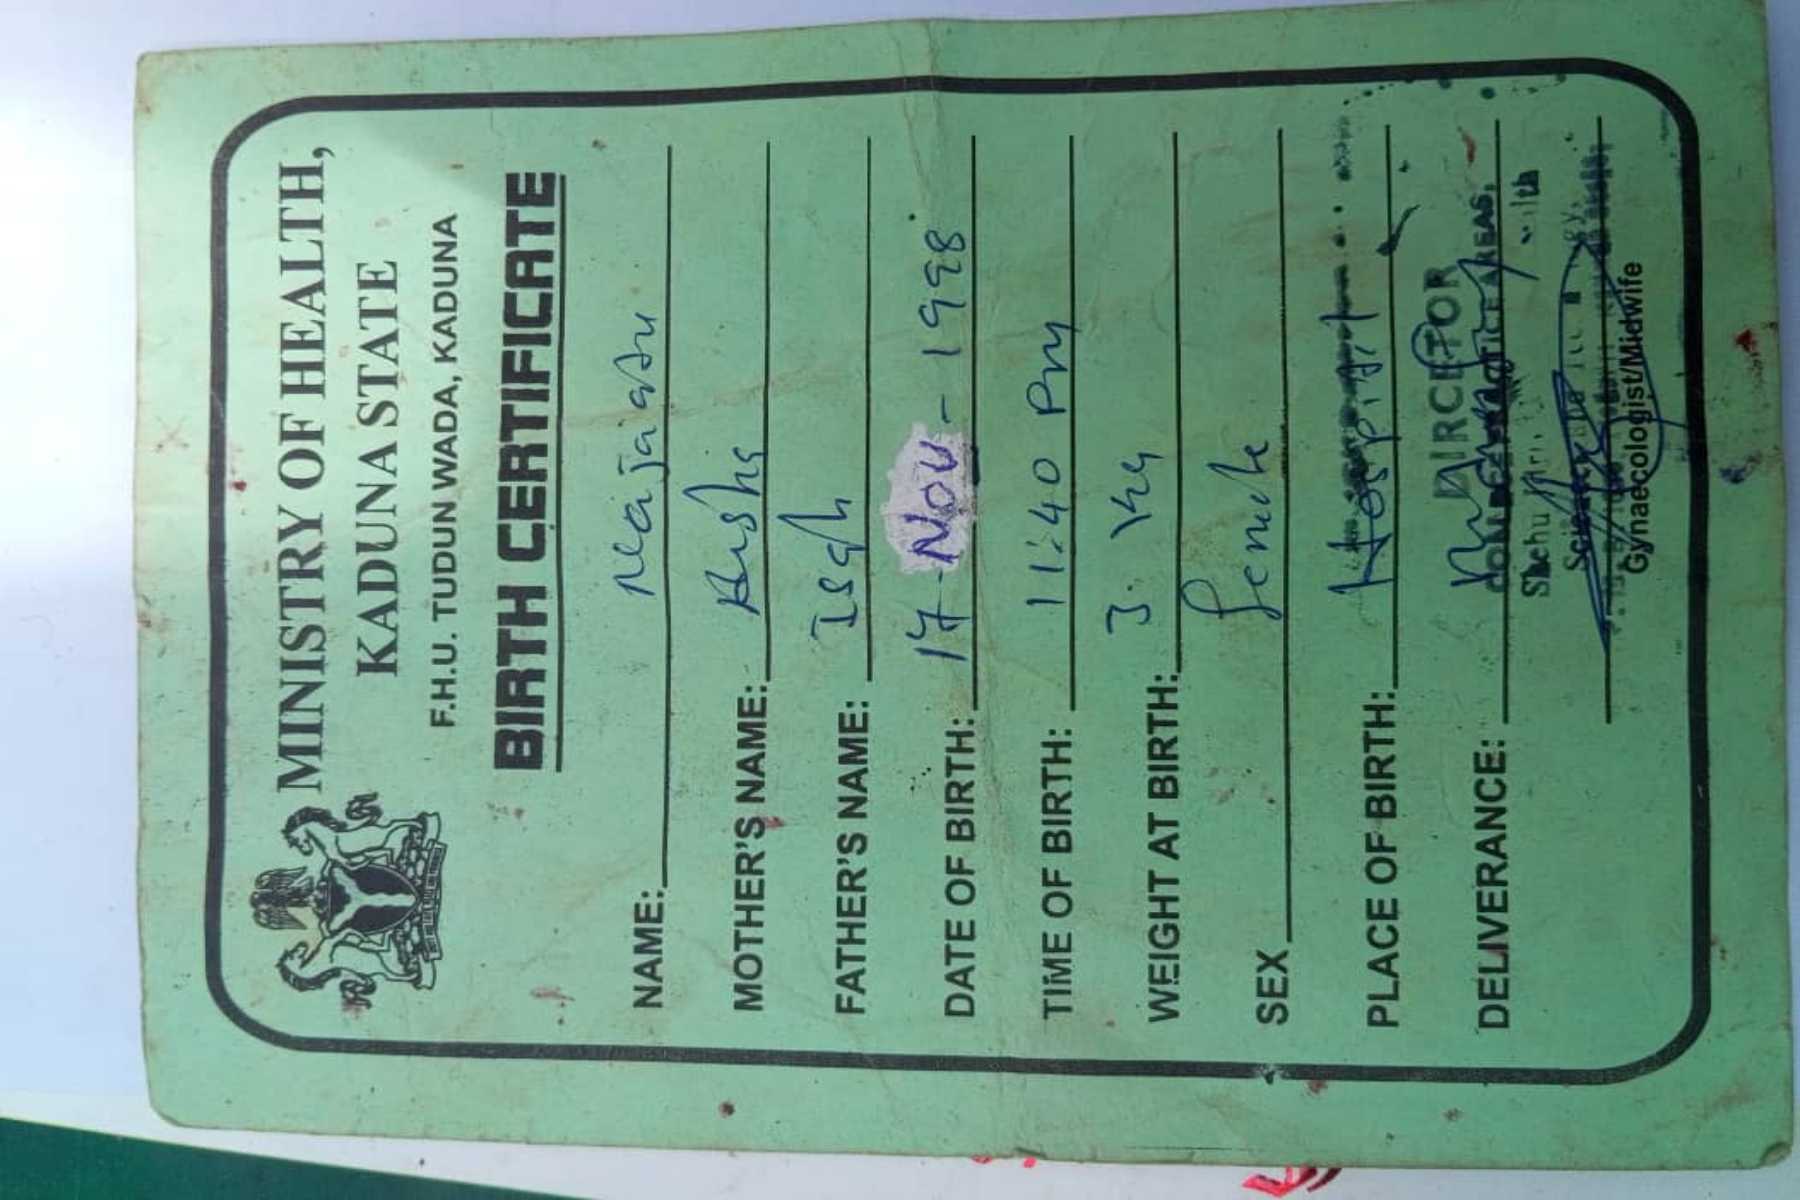 MINISTRY OF HEALTH,
KADUNA STATE
F.H.U. TUDUN WADA, KADUNA
BIRTH CERTIFICATE
NAME: Najaatu
MOTHER'S NAME:
FATHER'S NAME: Isah
DATE OF BIRTH: 17-Nov-1998
TIME OF BIRTH: 11:40 Pm
WEIGHT AT BIRTH: 3. Kg
SEX Female
PLACE OF BIRTH: Hospital
DIRCETOR
DELIVERANCE: Normal
Shehu
Gynaecologist/Midwife